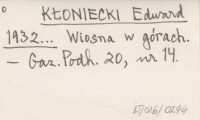 KŁONIECKI Edward
1932... Wiosna w górach.
– Gaz. Podh. 20, nr 14.